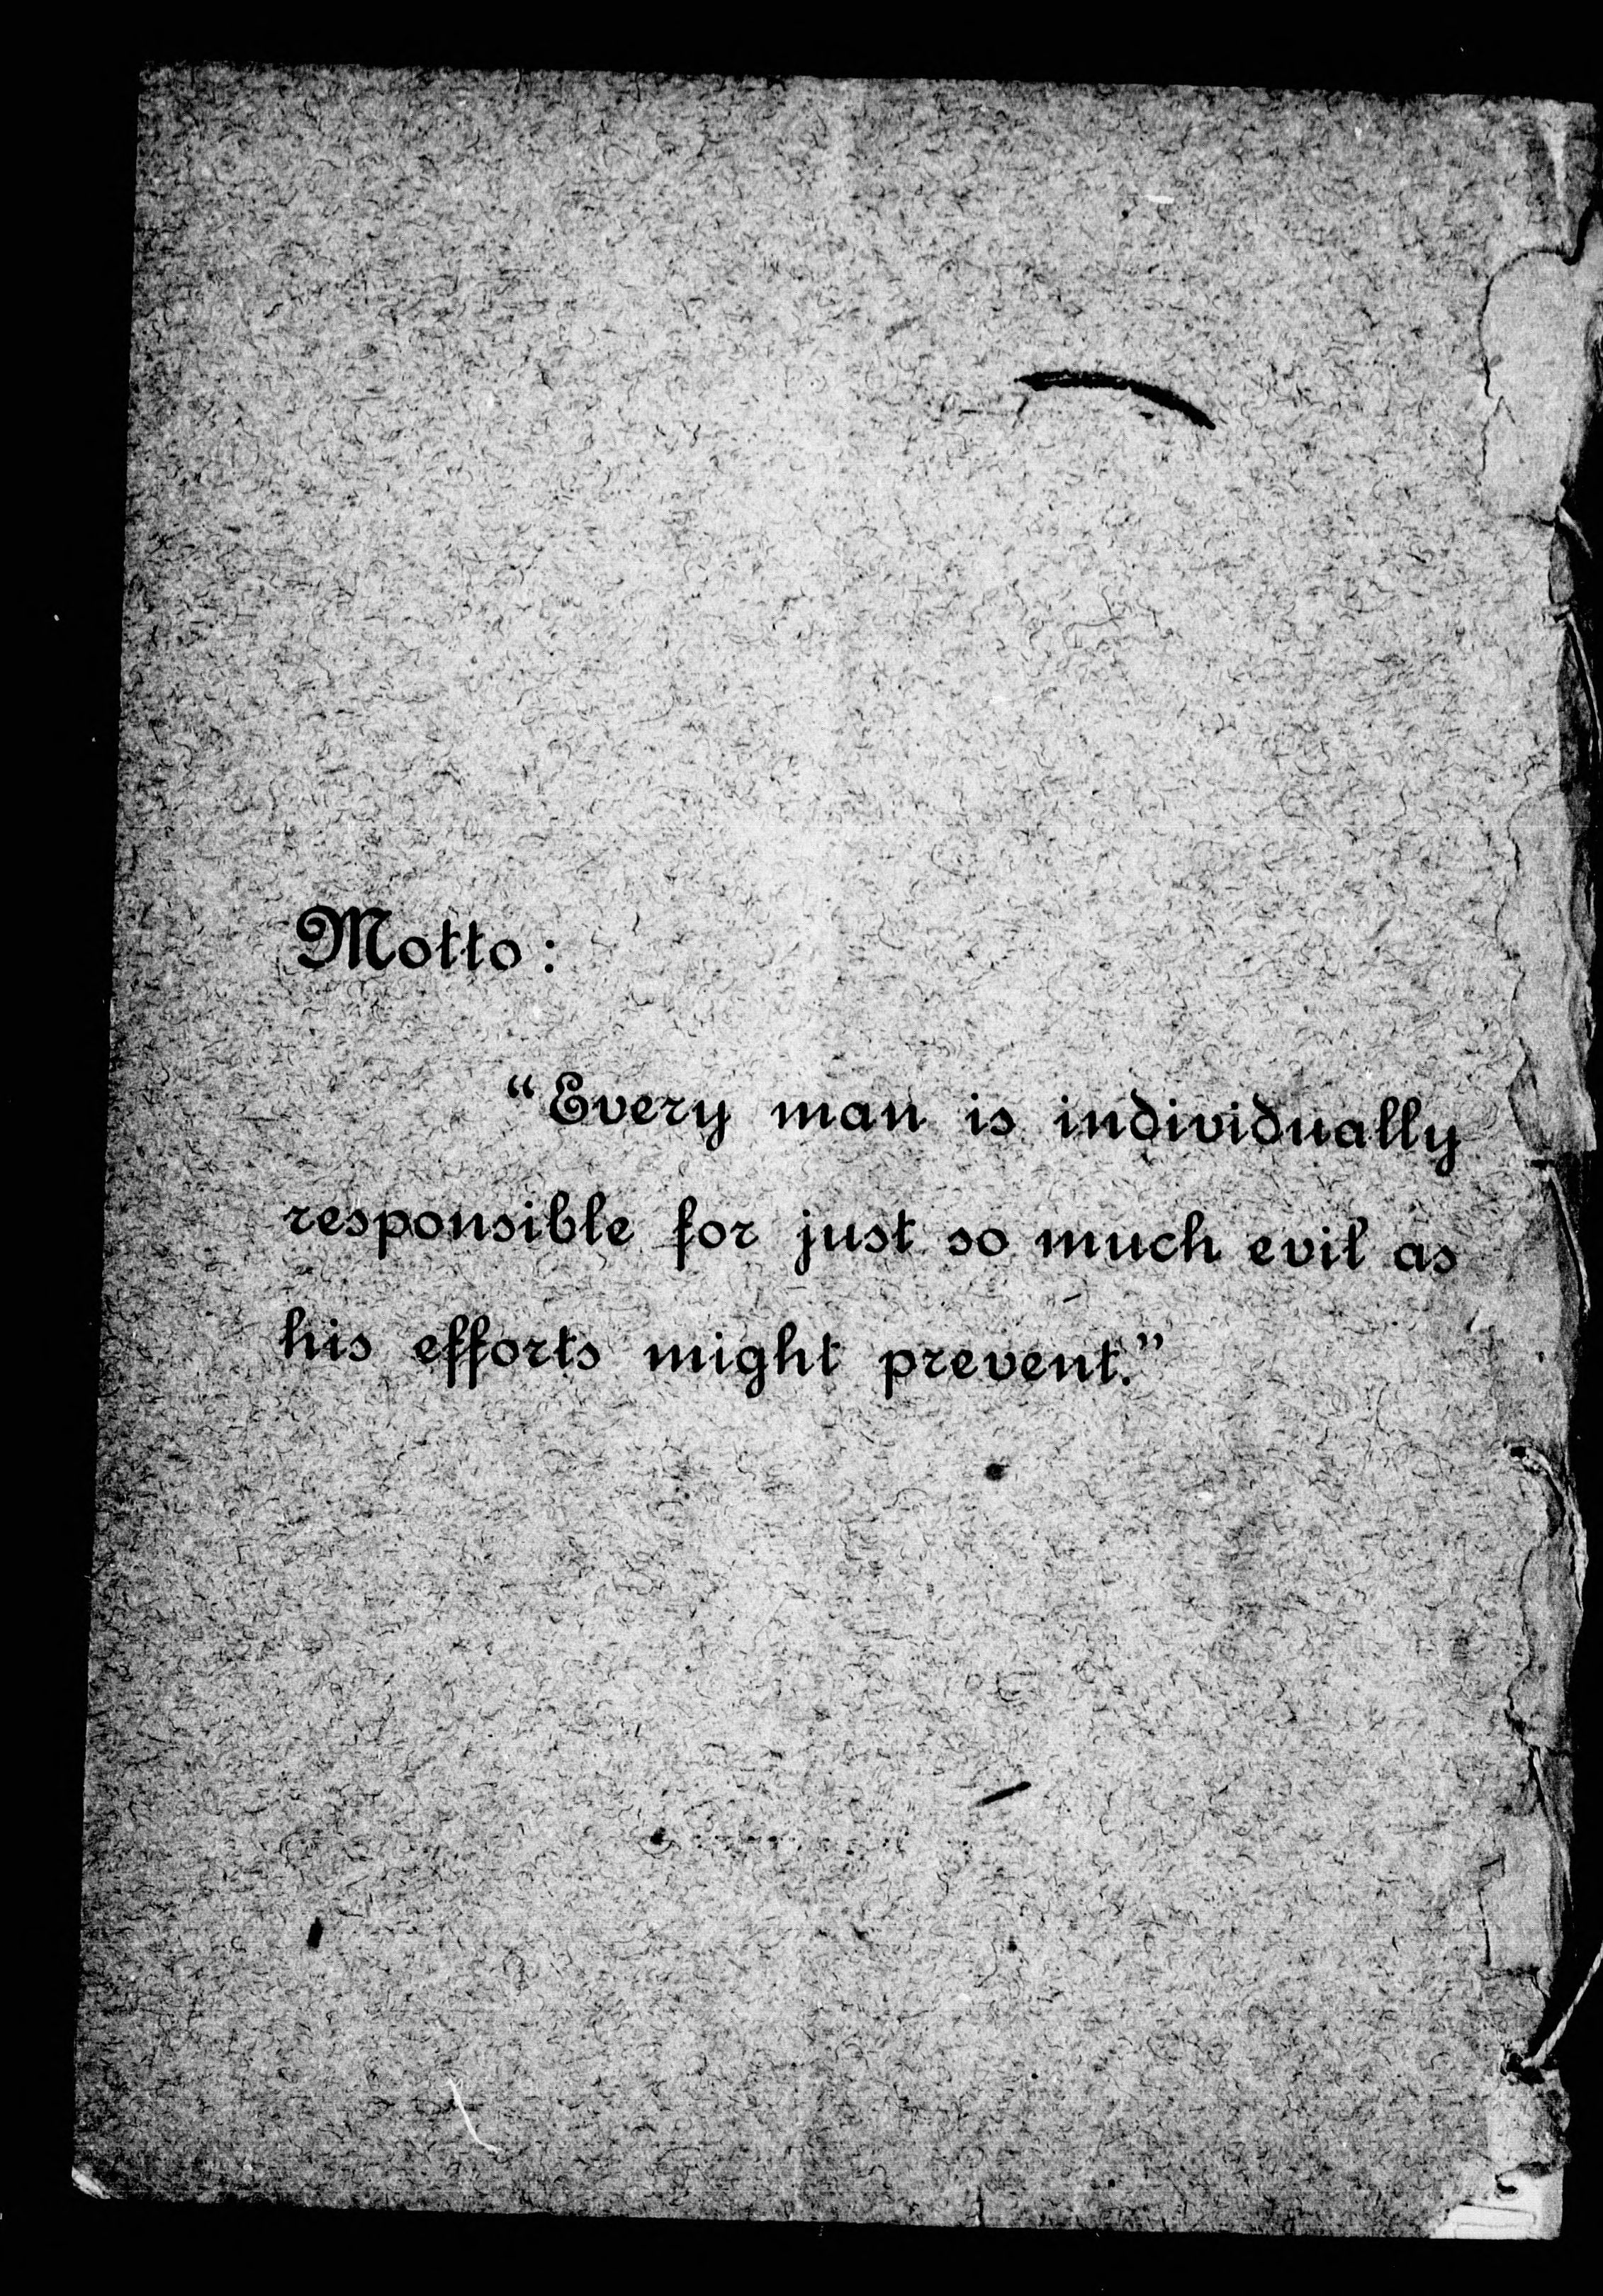 Motto:
“Every man is individually
responsible for just so much evil as
his efforts might prevent.”